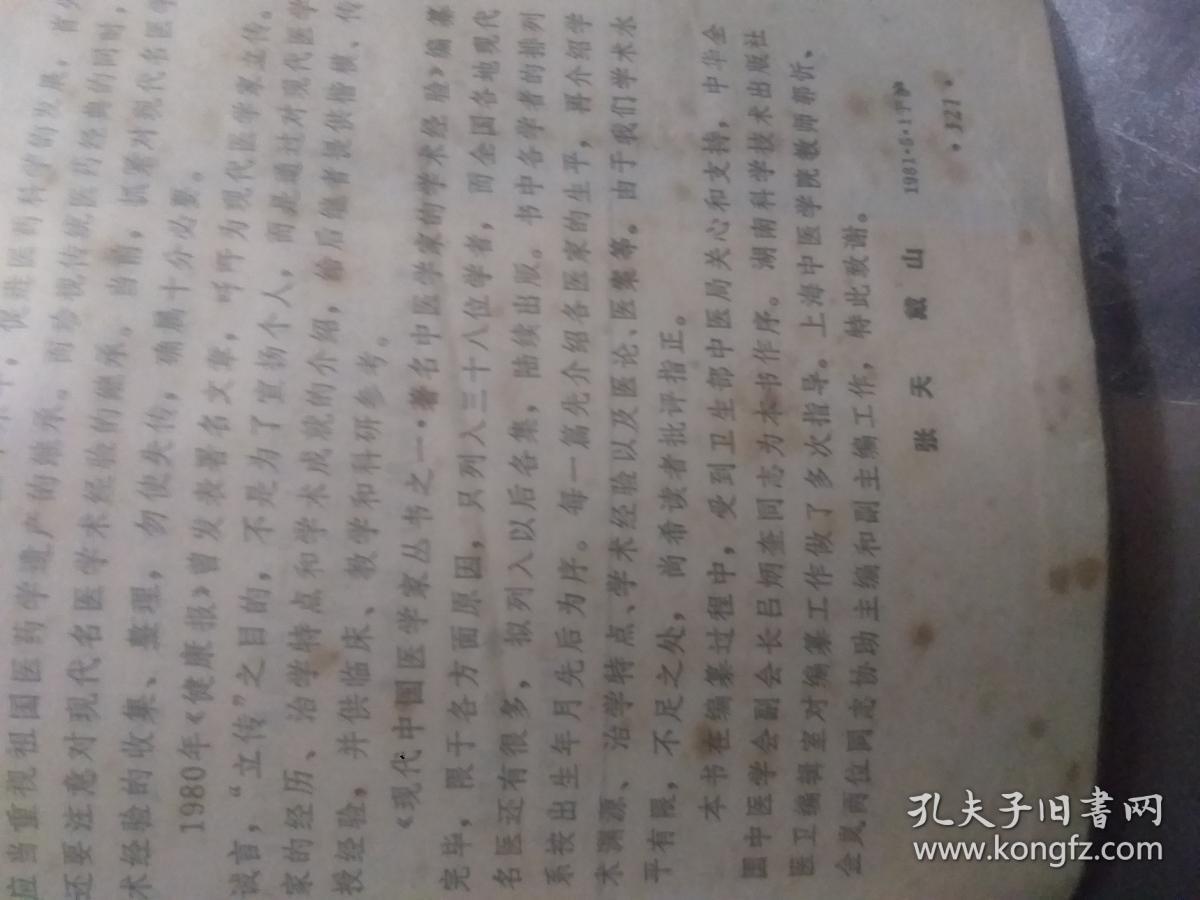 应当重视祖国医药学遗产的继承。而珍视传统医药经典的同时，
还要注意对现代名医学术经验的继承。当前，抓紧对现代名医学
术经验的收集、整理，勿使失传，确属十分必要。
1980年《健康报》曾发表署名文章，呼吁为现代医学家立传。
诚言，“立传”之目的，不是为了宣扬个人，而是通过对现代医学
家的经历、治学特点和学术成就的介绍，给后继者提供楷模、传
授经验，并供临床、教学和科研参考。
《现代中国医学家丛书之一·著名中医学家的学术经验》编纂
完毕，限于各方面原因，只列入三十八位学者，而全国各地现代
名医还有很多，拟列入以后各集，陆续出版。书中各学者的排列
系按出生年月先后为序。每一篇先介绍各医家的生平，再介绍学
术渊源、治学特点、学术经验以及医论、医案等。由于我们学术水
平有限，不足之处，尚希读者批评指正。
本书在编纂过程中，受到卫生部中医局关心和支持，中华全
国中医学会副会长吕炳奎同志为本书作序。湖南科学技术出版社
医卫编辑室对编纂工作做了多次指导。上海中医学院教师郭忻、
金岚两位同志协助主编和副主编工作，特此致谢。
张天 戴山 1981·5·1于沪
·321·
孔夫子旧书网
www.kongfz.com